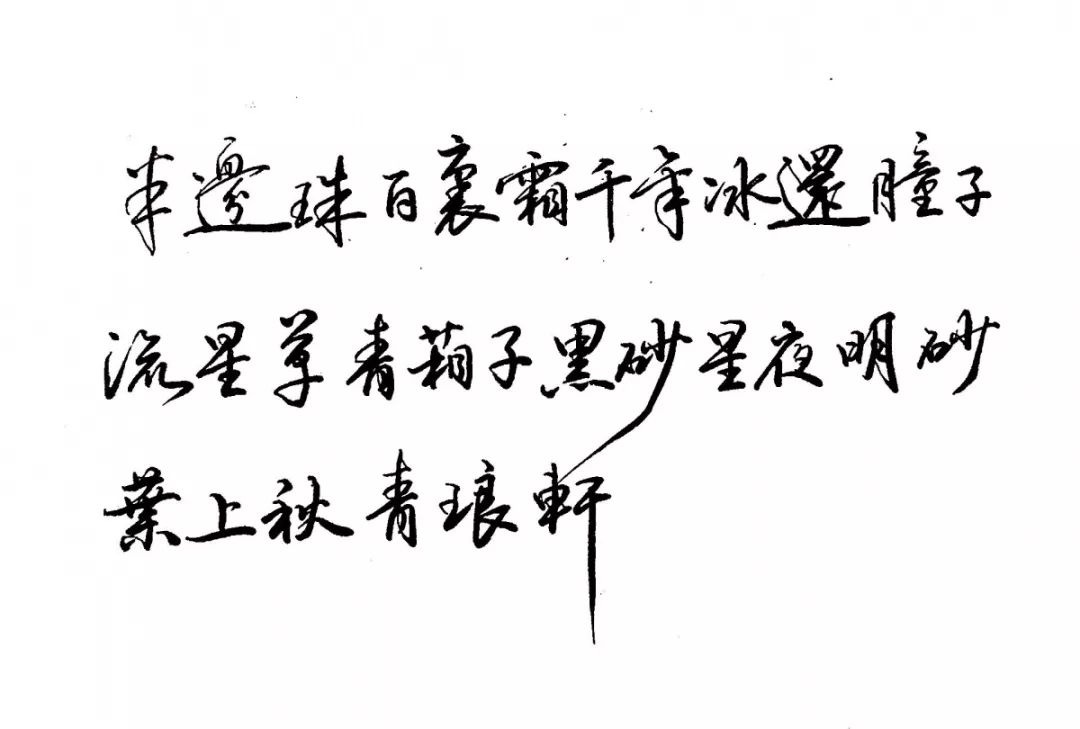 半邊珠百裏霜千年冰還瞳子
流星草青葙子黑砂星夜明砂
葉上秋青琅軒